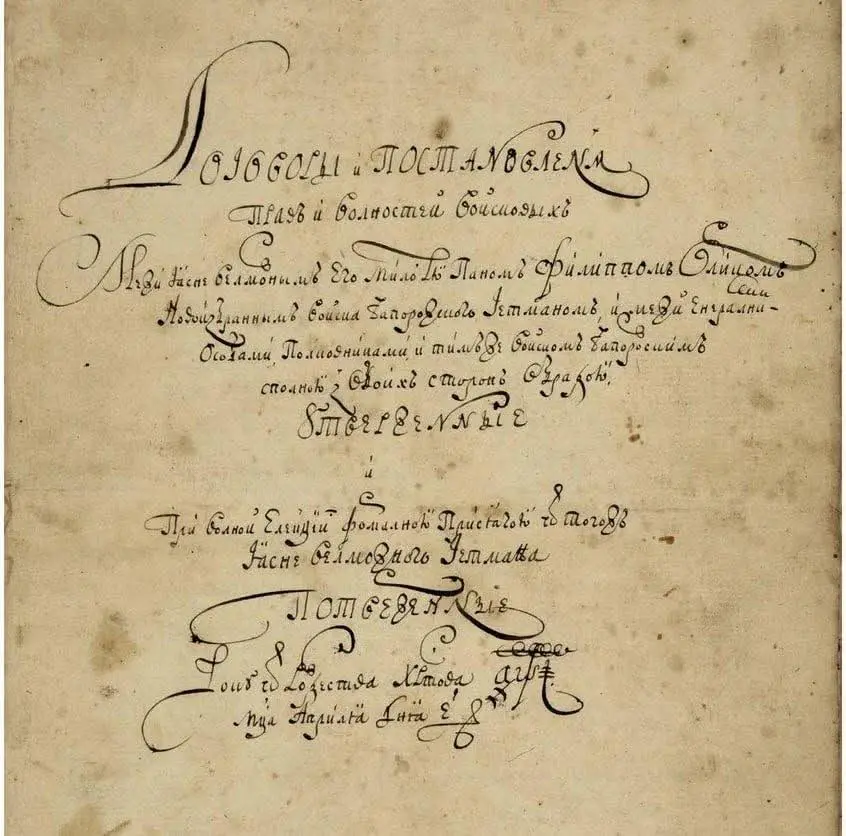 Договоры и постановленѧ
Правъ и волностей войсковыхъ
Межи Iасне велможнымъ Его Милостю Паномъ Филиппомъ Орликомъ
Новоизбраннымъ войска Запорозского Гетманомъ, и межи Енералними
Особами, Полковниками, и тимъже войскомъ Запорозскимъ
сполною з обоихъ сторонъ обрадою,
Утверженныıе
и
При волной Елекціи формалною Присягою ѿ тогожъ
Iасне велможного Гетмана
Потверженныıе
Року ѿ Рожества Христова ҂аѱı
мца Априля дня е